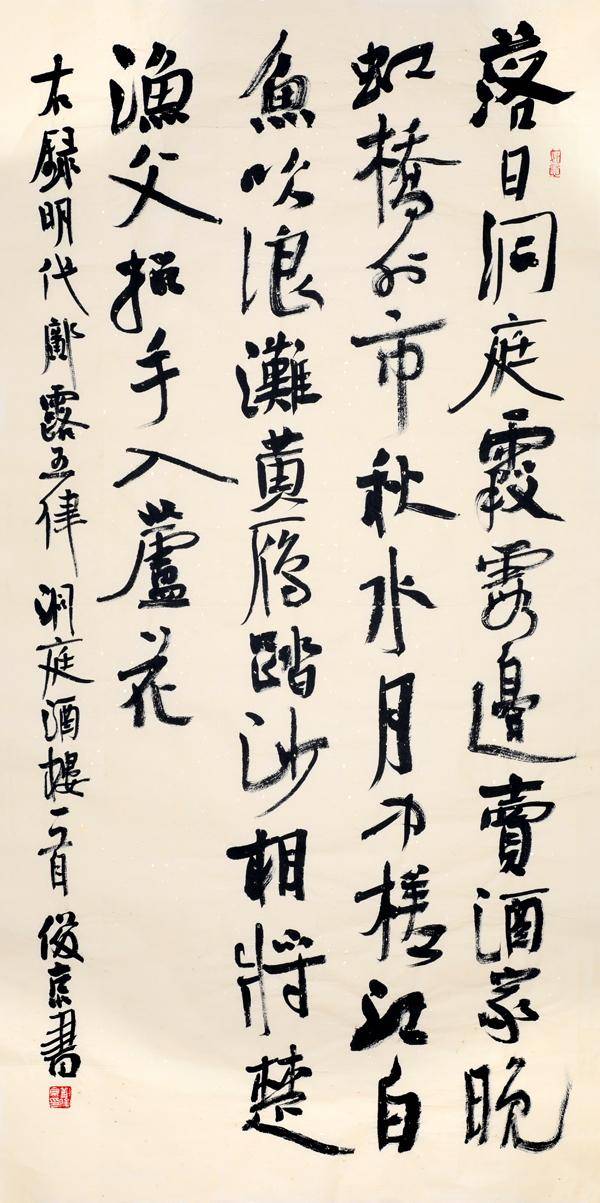 落日洞庭霞霞邊賣酒家晚
虹橋外市秋水月中槎江白
魚吹浪灘黄雁踏沙相將楚
漁父招手入蘆花
右錄明代鄺露五律 洞庭酒樓一首 俊京書